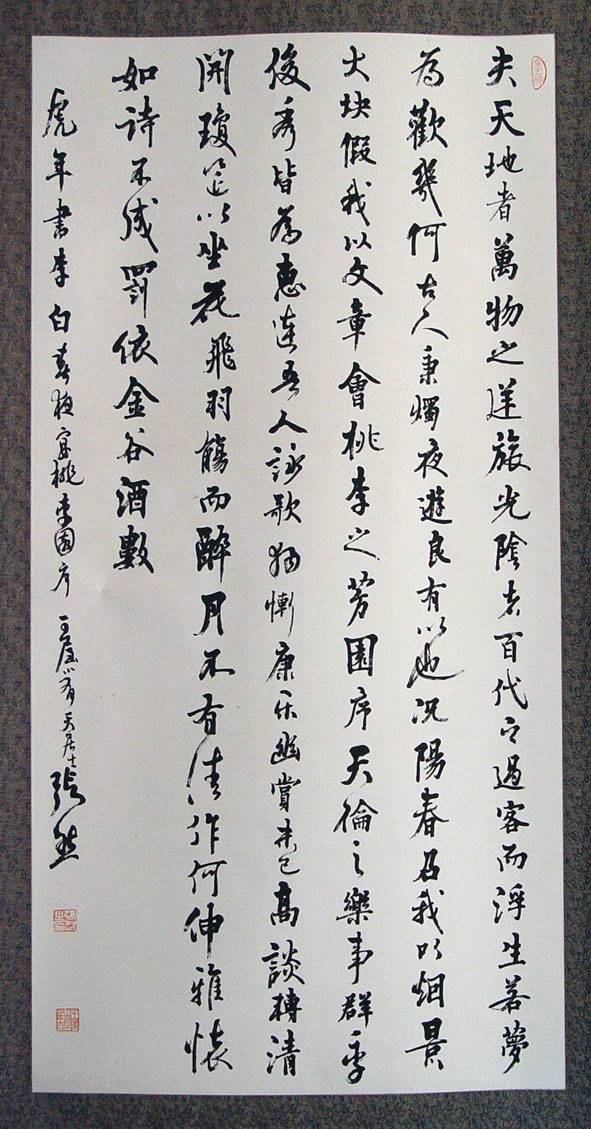 夫天地者萬物之逆旅光陰者百代之過客而浮生若夢
為歡幾何古人秉燭夜遊良有以也況陽春召我以烟景
大块假我以文章會桃李之芳園序天倫之樂事群季
俊秀皆為惠連吾人詠歌獨慚康乐幽賞未已高談轉清
開瓊筵以坐花飛羽觴而醉月不有佳作何伸雅懷
如詩不成罰依金谷酒數
虎年書李白春夜宴桃李園序 王屋山有天居士張